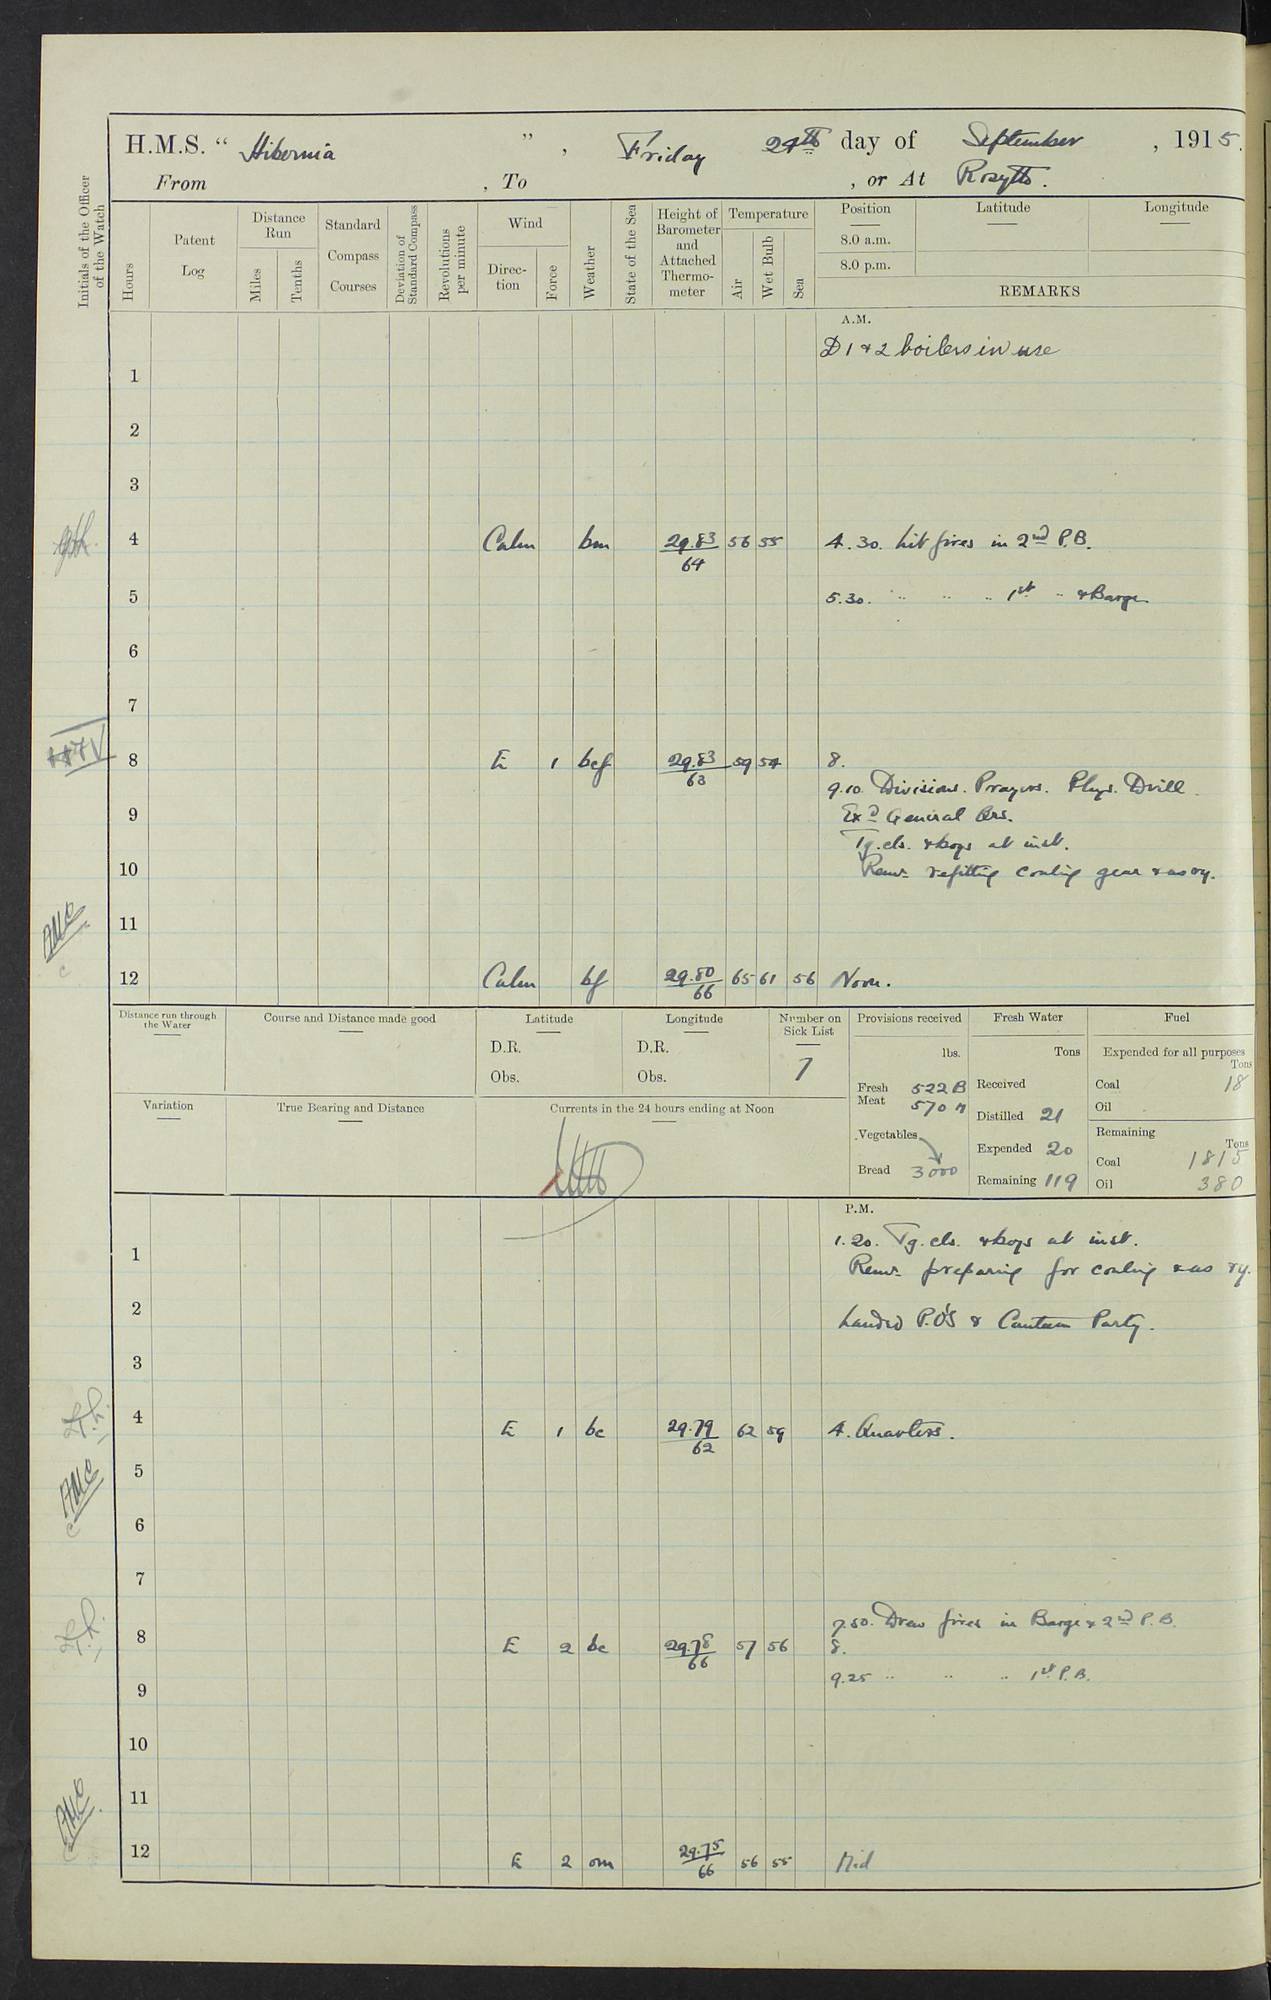 H.M.S. “ Hibernia ” , Friday 24th day of September , 1915.
From , To , or At Rosyth.
Initials of the Officer of the Watch
Hours
Patent Log
Distance Run
Miles
Tenths
Standard Compass Courses
Deviation of Standard Compass
Revolutions per minute
Wind
Direc-tion
Force
Weather
State of the Sea
Height of Barometer and Attached Thermo-meter
Temperature
Air
Wet Bulb
Sea
Position
8.0 a.m.
8.0 p.m.
Latitude
Longitude
REMARKS
A.M.
D 1 & 2 boilers in use
1
2
3
4 Calm bm 29.83/64 56 55 4.30. Lit fires in 2nd P.B.
5 5.30. " " " 1st " & Barge
6
7
8 E 1 bcf 29.83/63 59 54 8.
9.10. Divisions. Prayers. Phys. Drill.
9 Exd General Qrs.
Tg. cls. & boys at inst.
10 Remr refitting coaling gear & as ry.
11
12 Calm bf 29.80/66 65 61 56 Noon.
Distance run through the Water
Course and Distance made good
Latitude
D.R.
Obs.
Longitude
D.R.
Obs.
Number on Sick List
7
Provisions received
lbs.
Fresh Meat 522 B
570 M
Vegetables
Bread 3000
Fresh Water
Tons
Received
Distilled 21
Expended 20
Remaining 119
Fuel
Expended for all purposes
Tons
Coal 18
Oil
Remaining
Tons
Coal 1815
Oil 380
Variation
True Bearing and Distance
Currents in the 24 hours ending at Noon
P.M.
1.20. Tg. cls. & boys at inst.
1 Remr preparing for coaling & as ry.
2 Landed P.O's & Canteen Party.
3
4 E 1 bc 29.79/62 62 59 4. Quarters.
5
6
7
7.50. Drew fires in Barge & 2nd P.B.
8 E 2 bc 29.78/66 57 56 8.
9 9.25 " " " 1st P.B.
10
11
12 E 2 om 29.75/66 56 55 Mid